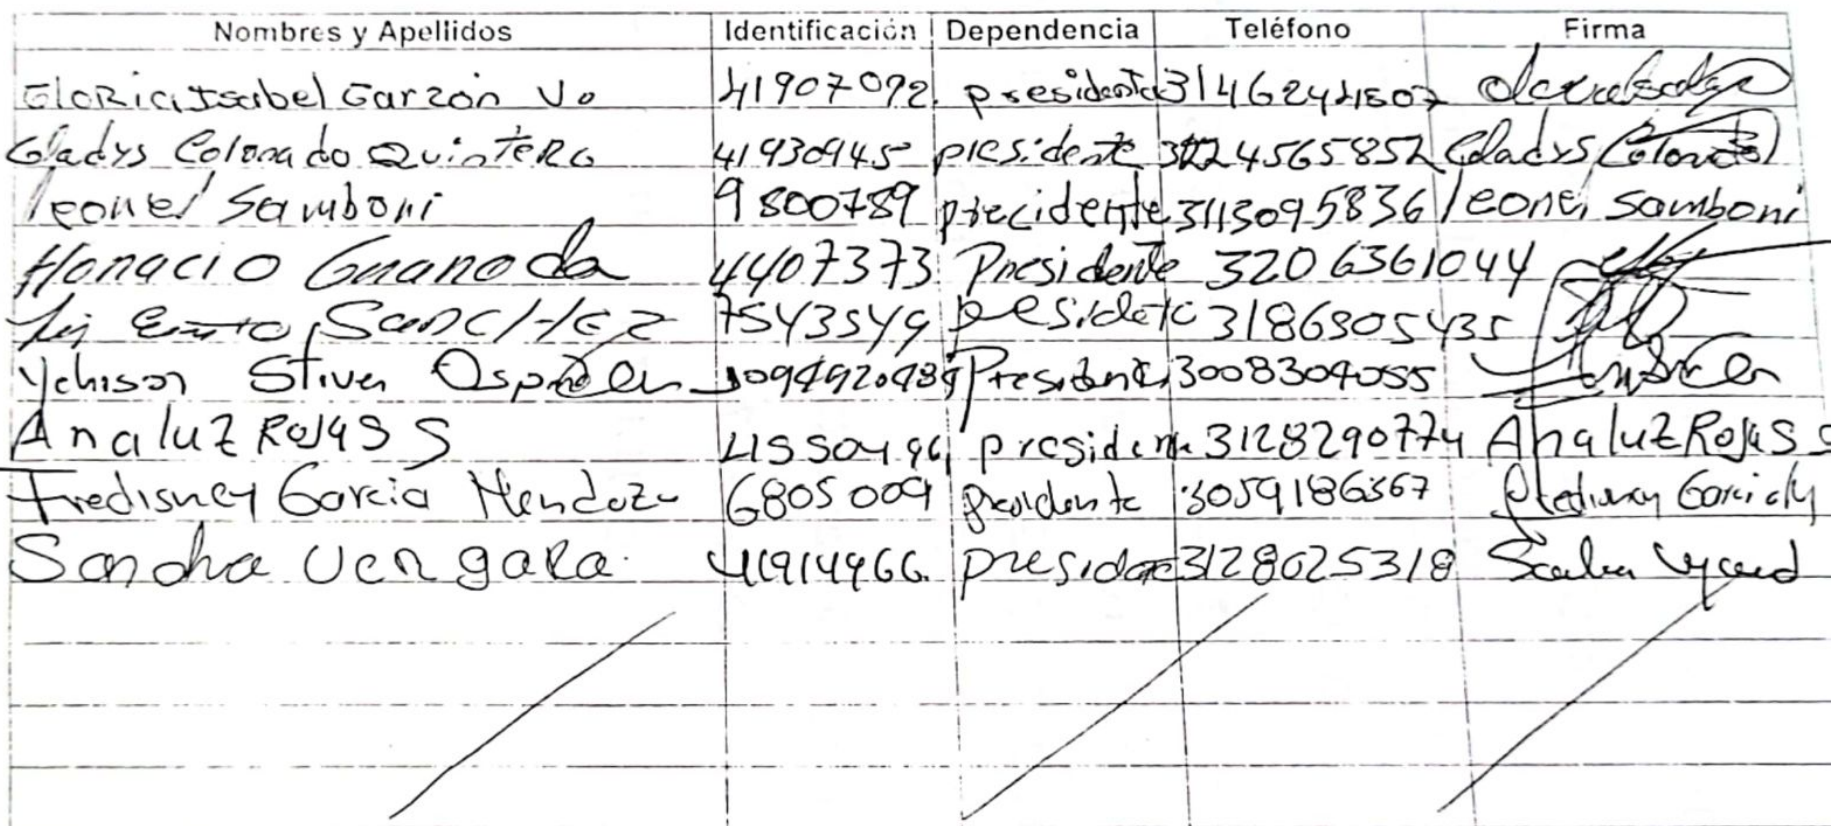 Nombres y Apellidos Identificación Dependencia Teléfono Firma
GloRia Isabel Garzón V. 41907092 presidenta
Gladys Colorado QuinteRo 41930945 presidente Gladys Colorado
leonel Samboni 9800789 precidente 3113095836 leonel Samboni
Horacio Granada 4407373 Presidente 3206361044
SancHez 7543549 3186805435
Stiven Ospina 1094920489 3008304055
Ana luz Rojas S 41550496 3128290774 Ana luz Rojas S
Fredisney Garcia Mendoza 6805009 presidente 3059186367
Sandra VengaRa 41914966 3128025318